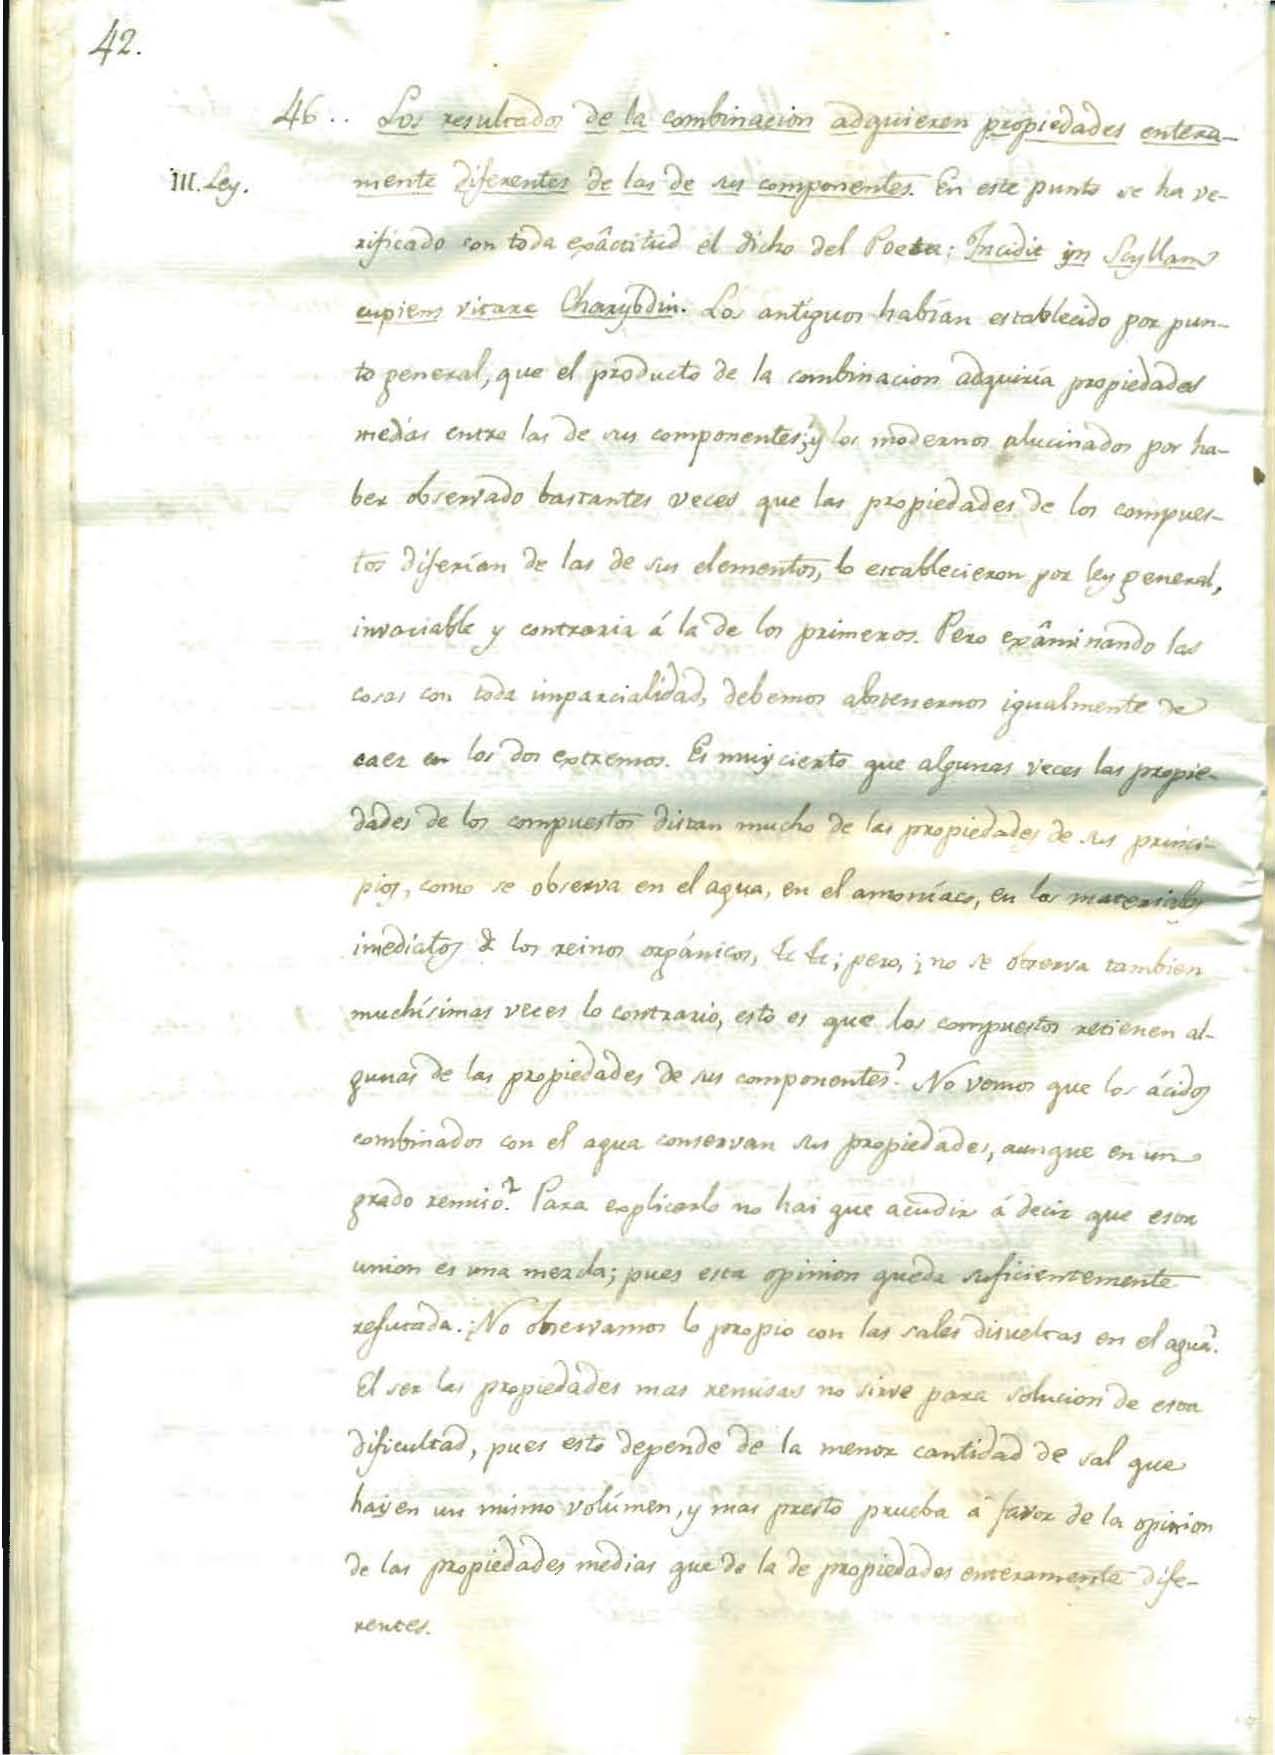 42.
46.. Los resultados de la combinacion adquieren propiedades entera-
III. Ley.
mente diferentes de las de sus componentes. En este punto se ha ve-
rificado con toda exâctitud el dicho del Poeta: Incidit in Scyllam
cupiens vitare Charybdin. Los antiguos habían establecido por pun-
to general, que el producto de la combinacion adquiría propiedades
medias entre las de sus componentes; y los modernos alucinados por ha-
ber observado bastantes veces que las propiedades de los compues-
tos diferían de las de sus elementos, lo establecieron por ley general,
invariable y contraria á la de los primeros. Pero exâminando las
cosas con toda imparcialidad, debemos abstenernos igualmente de
caer en los dos extremos. Es muy cierto que algunas veces las propie-
dades de los compuestos distan mucho de las propiedades de sus princi-
pios, como se observa en el agua, en el amoníaco, en los materiales
imediatos de los reinos orgánicos, &c &c; pero, ¿no se observa tambien
muchísimas veces lo contrario, esto es que los compuestos retienen al-
gunas de las propiedades de sus componentes? No vemos que los ácidos
combinados con el agua conservan sus propiedades, aunque en un
grado remiso? Para explicarlo no hai que acudir á decir que esta
union es una mezcla; pues esta opinion queda suficientemente
refutada. ¿No observamos lo propio con las sales disueltas en el agua?
El ser las propiedades mas remisas no sirve para solucion de esta
dificultad, pues esto depende de la menor cantidad de sal que
hay en un mismo volúmen, y mas presto prueba á favor de la opinion
de las propiedades medias que de la de propiedades enteramente dife-
rentes.